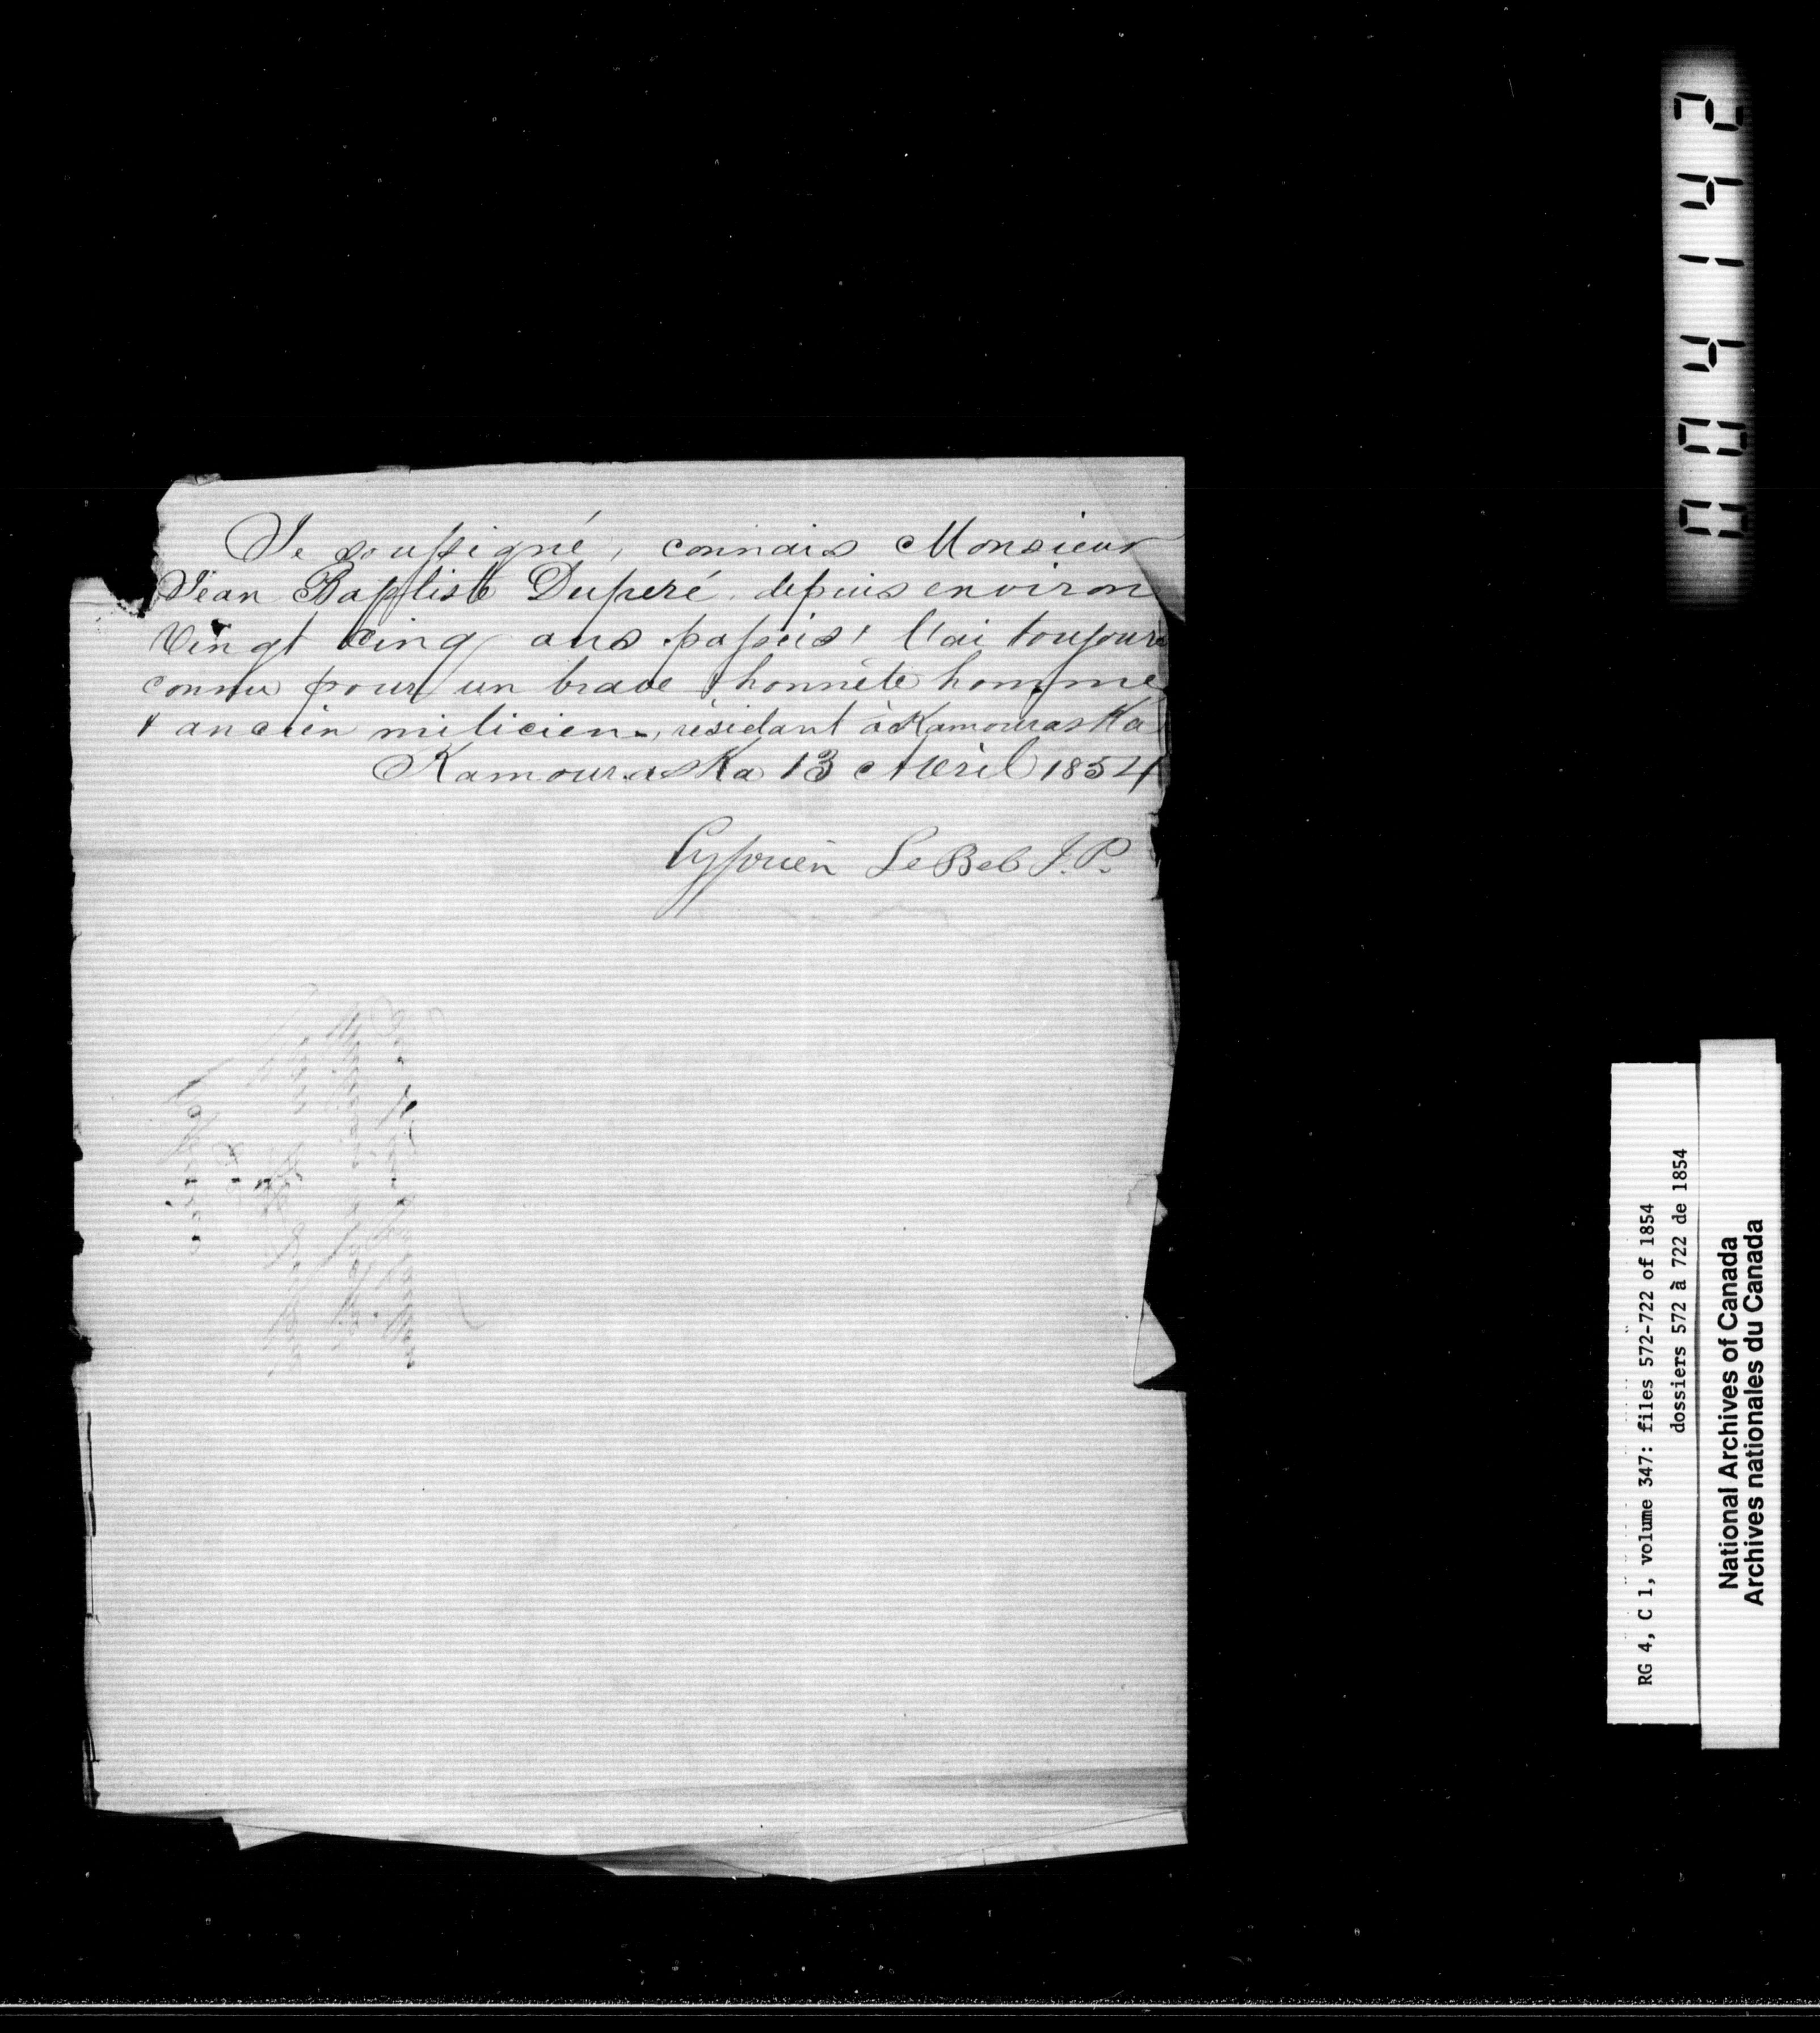 Je soussigné, connais Monsieur
Jean Baptiste Duperé, depuis environ
Vingt cinq ans passés, l'ai toujours
connu pour un brave & honnête homme
& ancien milicien, résidant à Kamouraska
Kamouraska 13 Avril 1854
Cyprien LeBel J.P.
RG 4, C 1, volume 347: files 572-722 of 1854
dossiers 572 à 722 de 1854
National Archives of Canada
Archives nationales du Canada